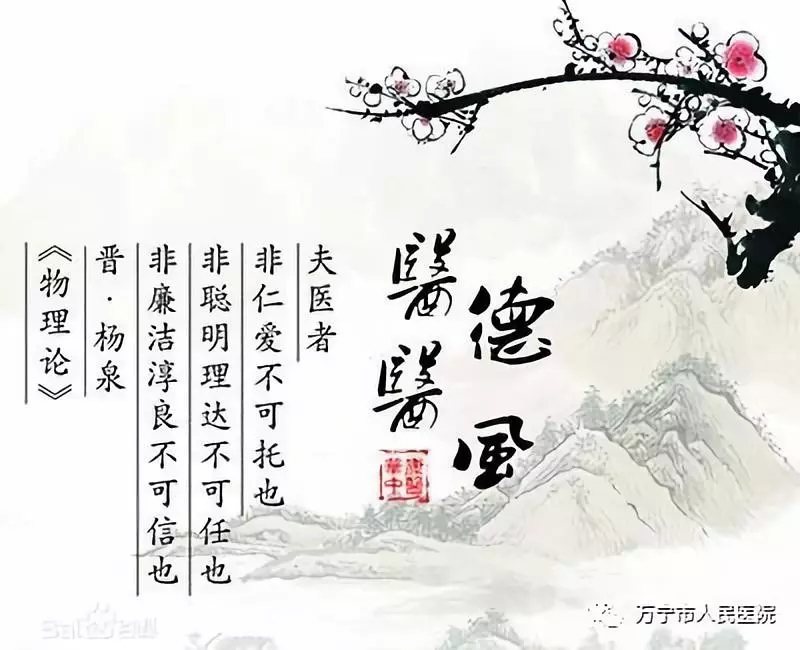 醫德
醫風
夫医者
非仁爱不可托也
非聪明理达不可任也
非廉洁淳良不可信也
晋·杨泉
《物理论》
万宁市人民医院